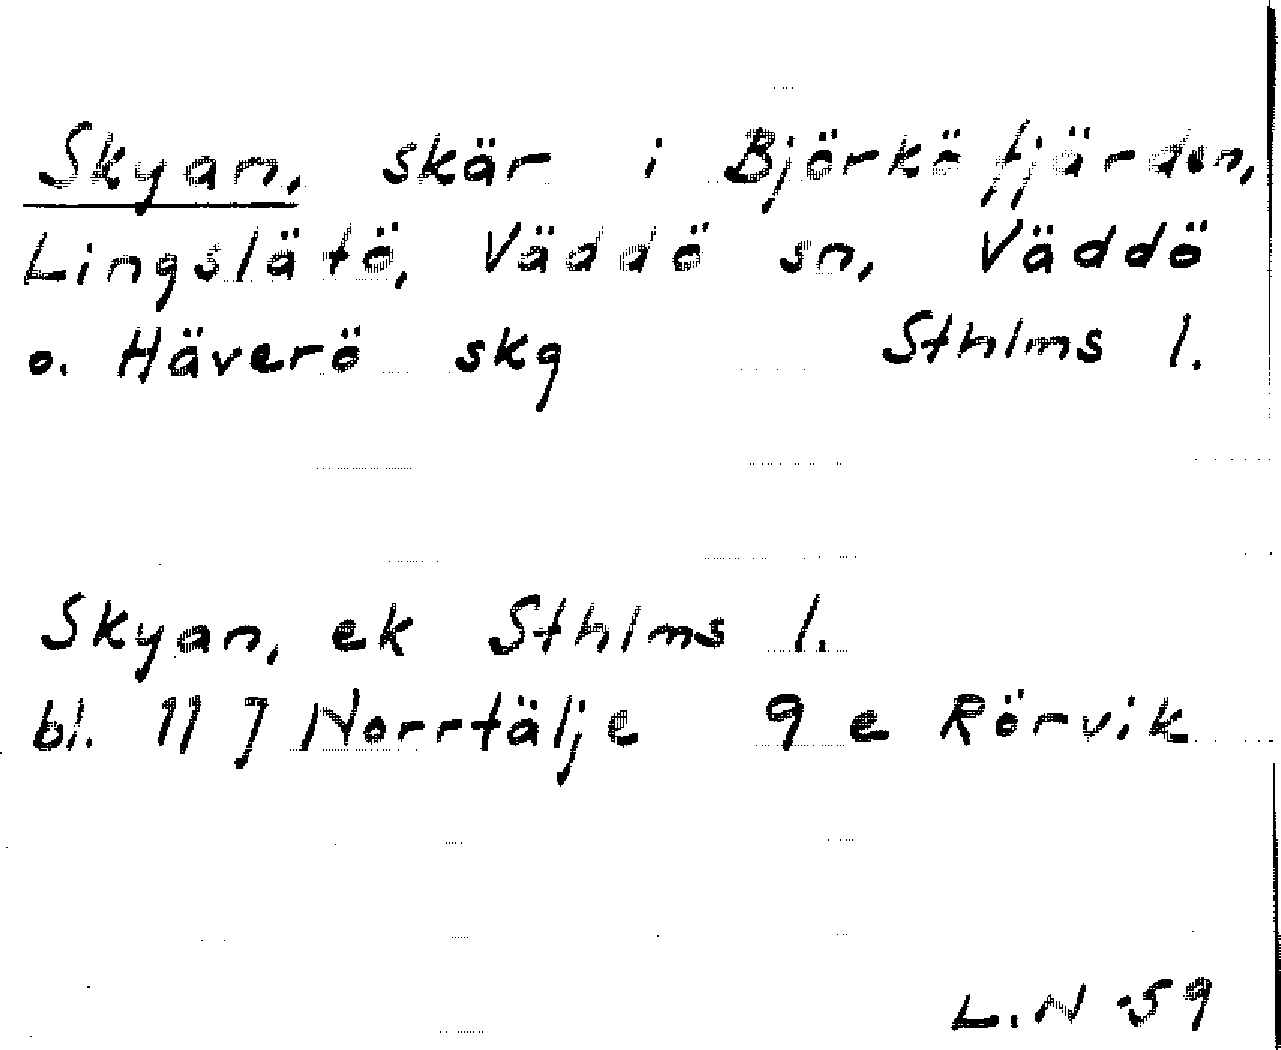 Skyan, skär i Björkö fjärden,
Lingslätö, Väddö sn, Väddö
o. Häverö skg Sthlms l.
Skyan, ek Sthlms l.
bl. 11 J Norrtälje 9 e Rörvik
L.N -59